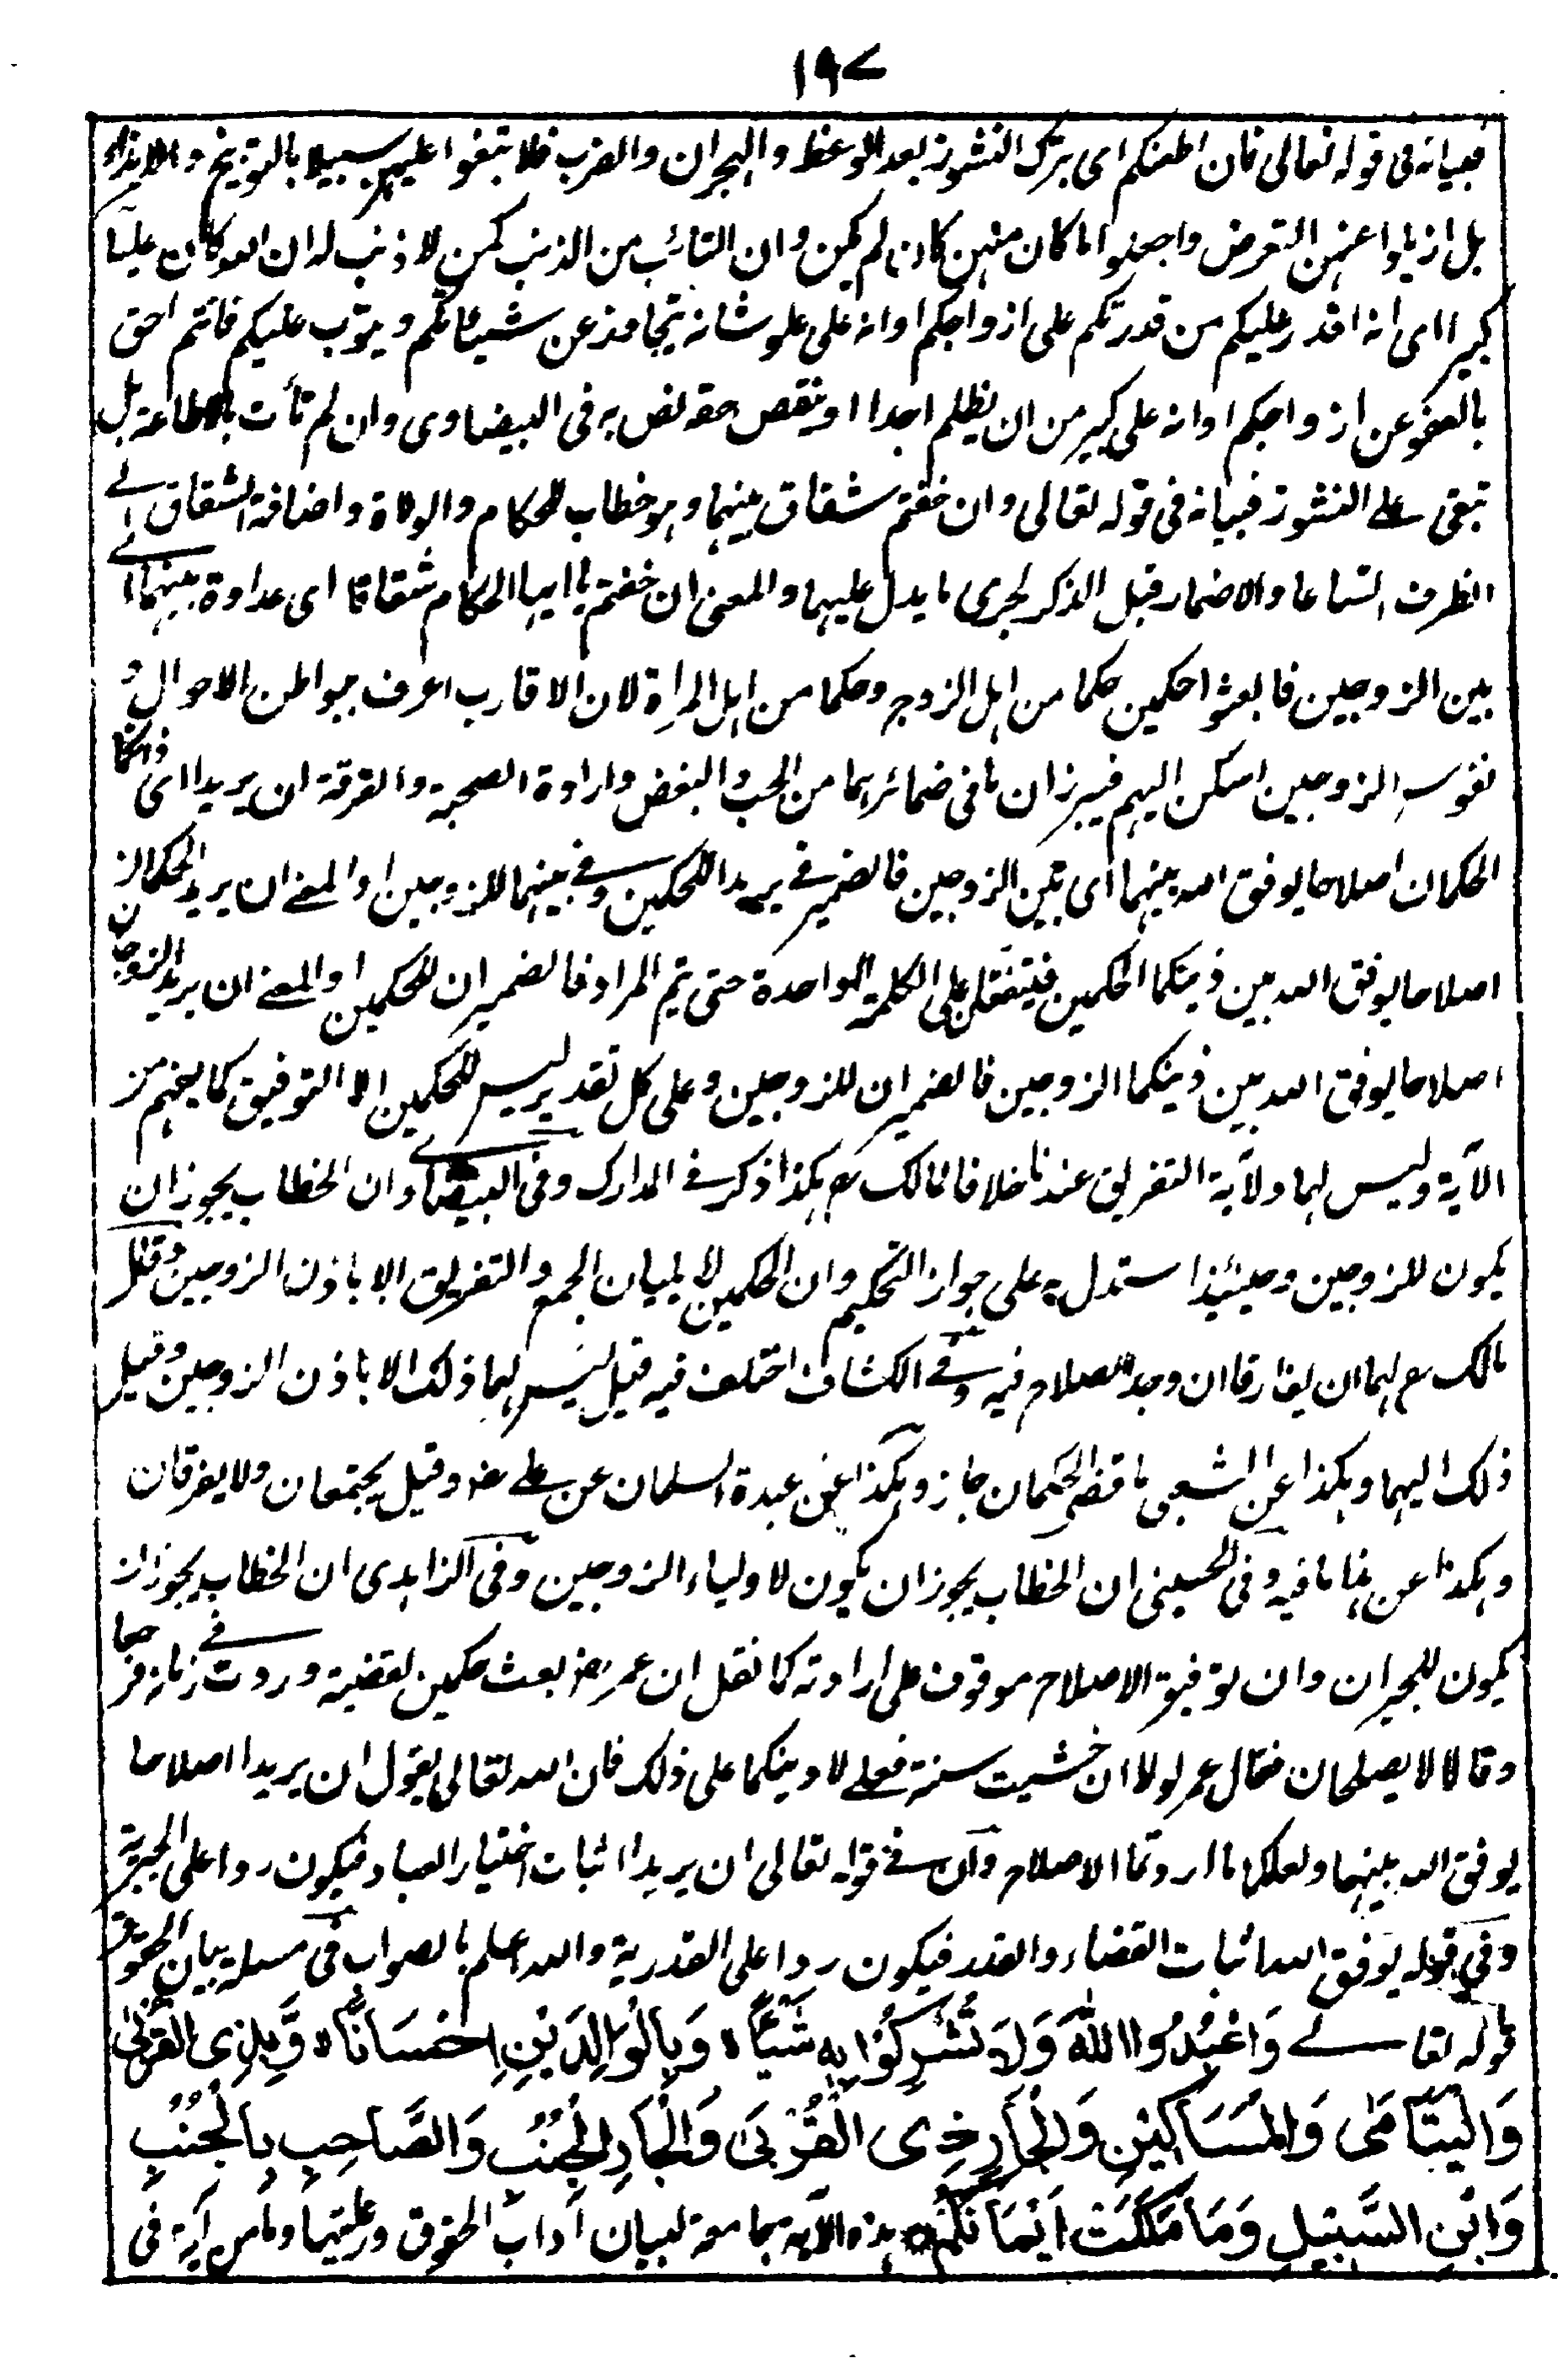 ١٩٧
فبيانه فى قوله تعالى فان اطعنكم اى بترك النشوز بعد الوعظ والهجران والضرب فلا تبغوا عليهن سبيلا بالتوبيخ والايذاء
بل ازيلوا عنهن التعرض واجعلوا ما كان منهن كان لم يكن وان التائب من الذنب كمن لا ذنب له ان الله كان عليا
كبيرا اى انه اقدر عليكم من قدرتكم على ازواجكم او انه على علو شانه يتجاوز عن سيئاتكم ويتوب عليكم فانتم احق
بالعفو عن ازواجكم او انه على كبير من ان يظلم احدا او ينقص حقه نص به فى البيضاوى وان لم تأت بالاطاعة بل
تبقى على النشوز فبيانه فى قوله تعالى وان خفتم شقاق بينهما وهو خطاب للحكام والولاة واضافة الشقاق الے
الظرف اتساعا والاضمار قبل الذكر لجرى ما يدل عليهما والمعنى ان خفتم يا ايها الحكام شقاقا اى عداوة بينهما اے
بين الزوجين فابعثوا حكمين حكما من اهل الزوج وحكما من اهل المرأة لان الاقارب اعرف ببواطن الاحوال و
نفوس الزوجين اسكن اليهم فيبرزان ما فى ضمائرهما من الحب والبغض وارادة الصحبة والفرقة ان يريدا اى ذانك
الحكمان اصلاحا يوفق الله بينهما اى بين الزوجين فالضمير فے يريدا للحكمين وفے بينهما للزوجين او المعنے ان يريد الحكمان
اصلاحا يوفق الله بين ذينكما الحكمين فيتفقان على الكلمة الواحدة حتى يتم المراد فالضميران للحكمين او المعنے ان يريد الزوجان
اصلاحا يوفق الله بين ذينكما الزوجين فالضميران للزوجين وعلى كل تقدير ليس للحكمين الا التوفيق كما يفهم من
الآية وليس لهما ولاية التفريق عندنا خلافا لمالك رح هكذا ذكر فے المدارك وفى البيضاوے ان الخطاب يجوز ان
يكون للزوجين وحينئذ استدل به على جواز التحكيم وان الحكمين لا يليان الجمع والتفريق الا باذن الزوجين وقال
مالك رح لهما ان يفارقا ان وجد الصلاح فيه وفے الكشاف اختلف فيه قيل ليس لهما ذلك الا باذن الزوجين وقيل
ذلك اليهما وهكذا عن الشعبى ما قضى الحكمان جاز وهكذا عن عبدة السلمان عن علے رضه وقيل يجتمعان ولا يفرقان
وهكذا عن ما فيه وفى الحسينى ان الخطاب يجوز ان يكون لاولياء الزوجين وفى الزاهدى ان الخطاب يجوز ان
يكون للجيران وان توفيق الاصلاح موقوف على ارادته كما نقل ان عمر رضه بعث حكمين لقضية وردت فے زمانه فرجعا
وقالا لا يصلحان فقال عمر لولا ان خشيت سنة فعلے لادبنكما على ذلك فان الله تعالى يقول ان يريدا اصلاحا
يوفق الله بينهما ولعلكما ما اردتما الاصلاح وان فے قوله تعالى ان يريدا اثبات اختيار العباد فيكون ردا على الجبرية
وفى قوله يوفق الله اثبات القضاء والقدر فيكون ردا على القدرية والله اعلم بالصواب فى مسئلة بيان الحقوق
قوله تعالے وَاعْبُدُوا اللّٰهَ وَلَا تُشْرِكُوْا بِهٖ شَيْئًا وَبِالْوَالِدَيْنِ اِحْسَانًا وَّبِذِى الْقُرْبٰى
وَالْيَتَامٰى وَالْمَسَاكِيْنِ وَالْجَارِ ذِى الْقُرْبٰى وَالْجَارِ الْجُنُبِ وَالصَّاحِبِ بِالْجَنْبِ
وَابْنِ السَّبِيْلِ وَمَا مَلَكَتْ اَيْمَانُكُمْ هذه الآية جامعة لبيان آداب الحقوق ورعايتها وما من آية فى